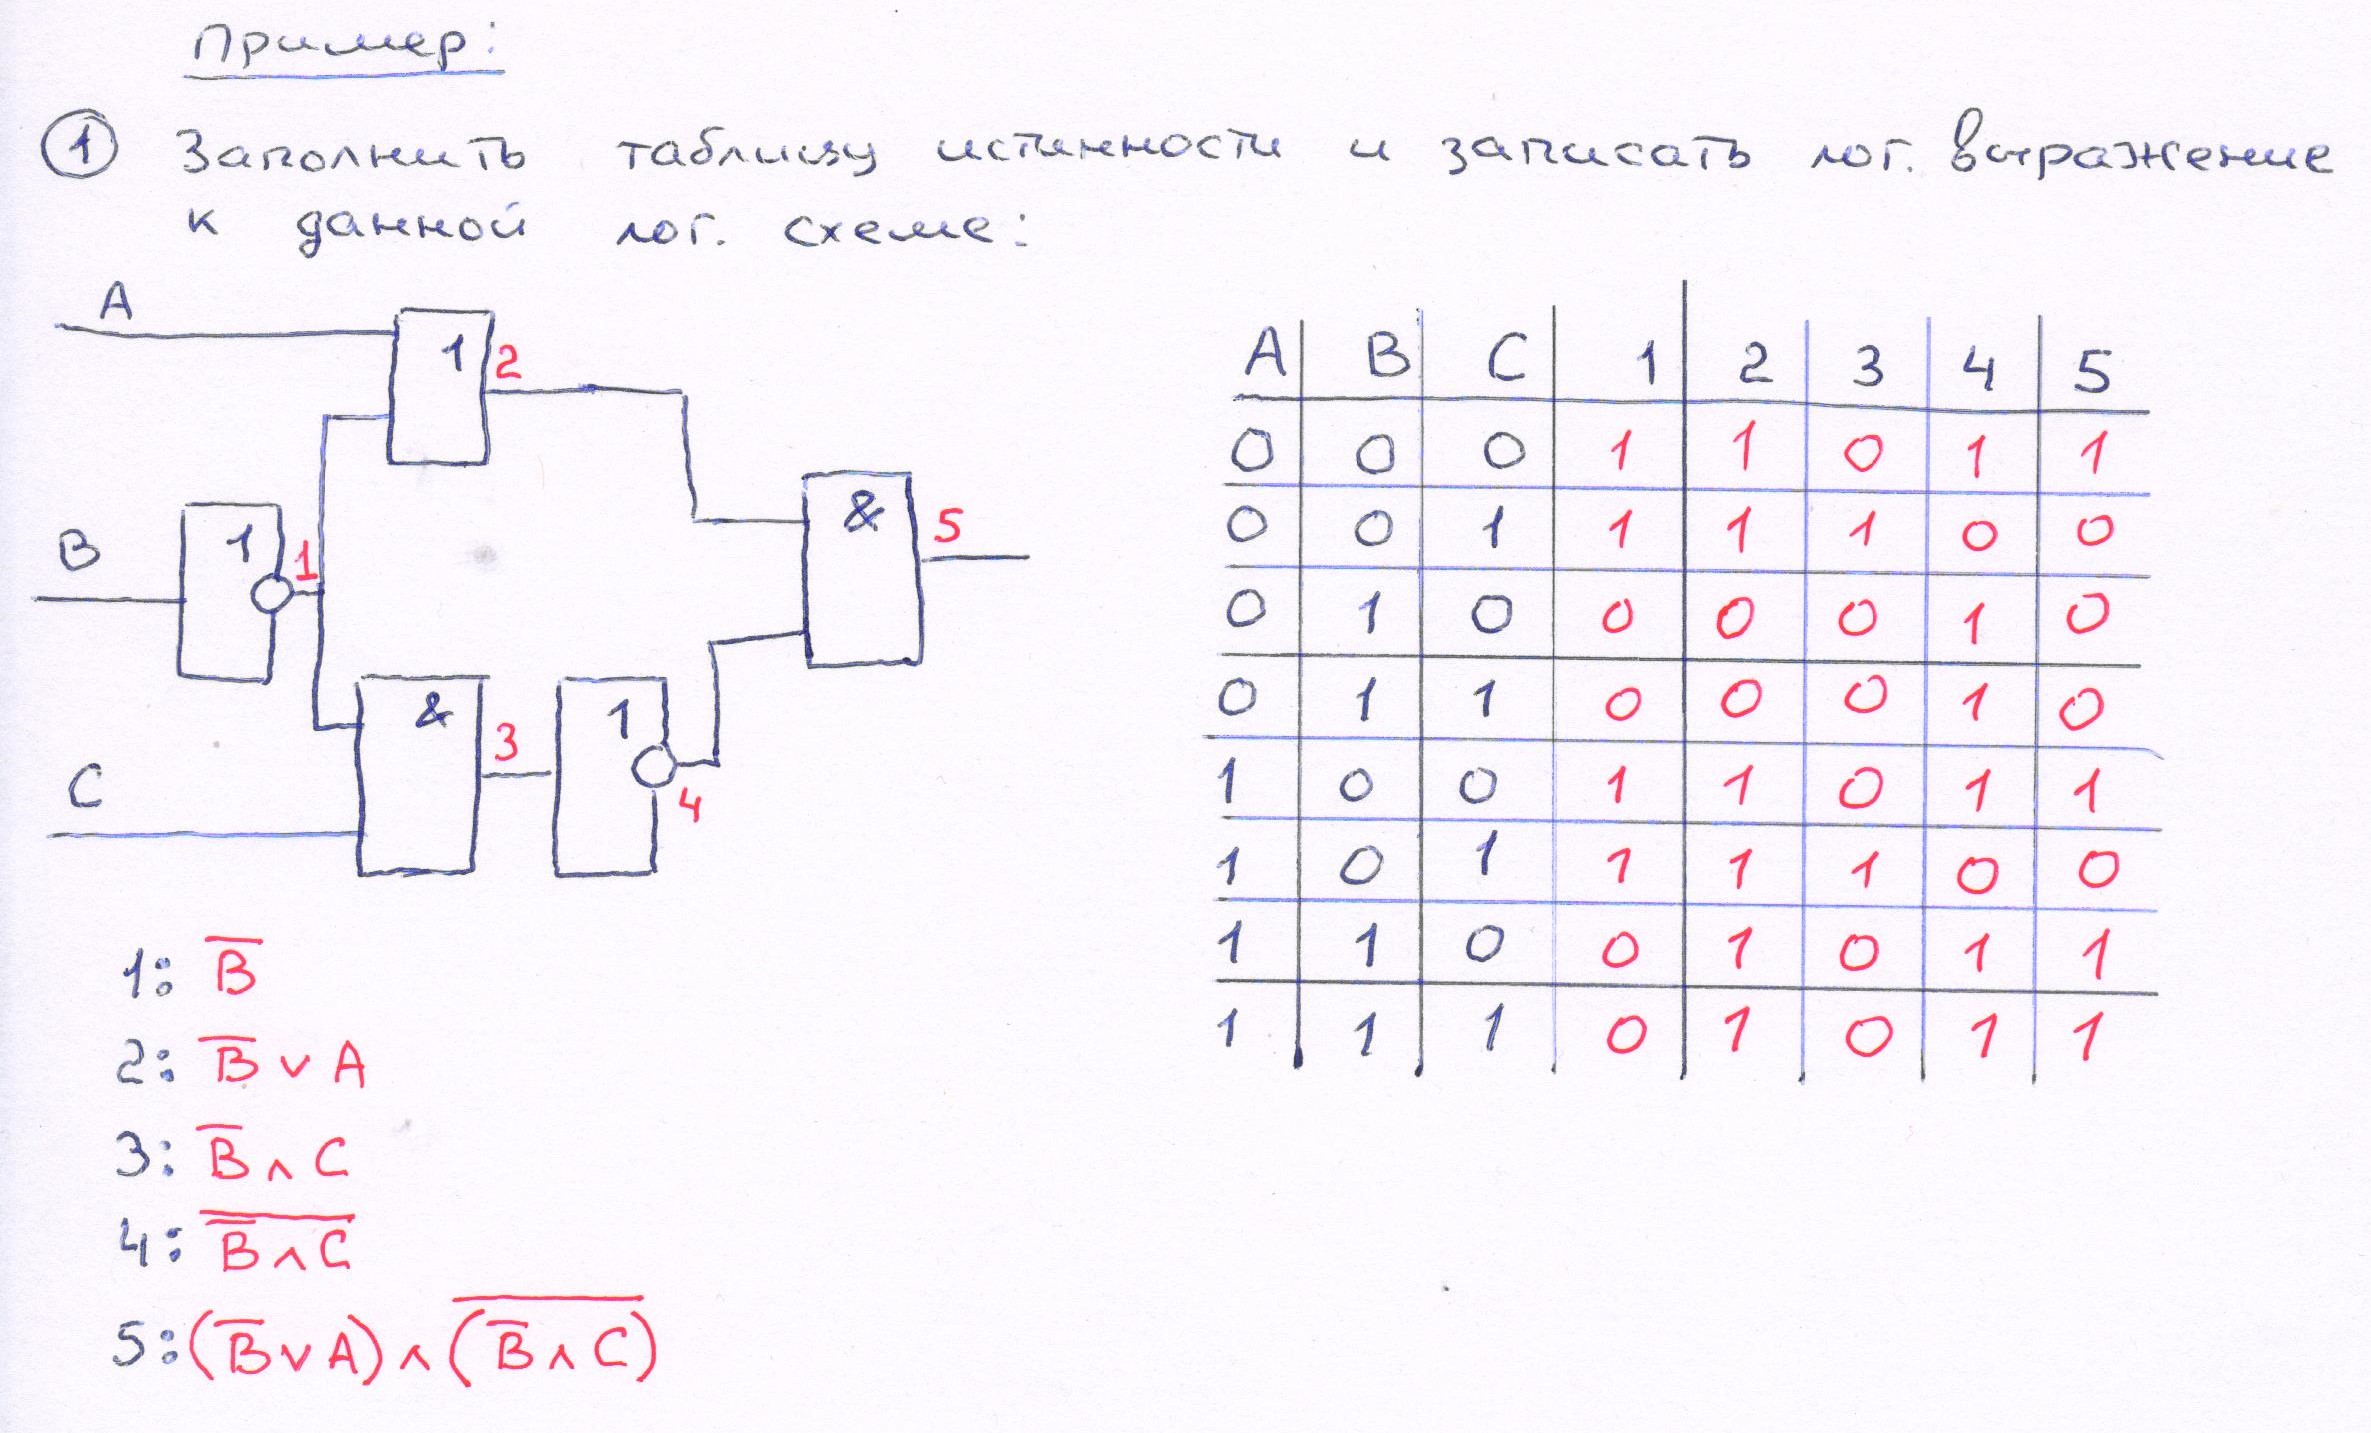 Пример:
① Заполнить таблицу истинности и записать лог. выражение
к данной лог. схеме:
A
1
2
B
1
1
&
5
C
&
3
1
4
A B C 1 2 3 4 5
0 0 0 1 1 0 1 1
0 0 1 1 1 1 0 0
0 1 0 0 0 0 1 0
0 1 1 0 0 0 1 0
1 0 0 1 1 0 1 1
1 0 1 1 1 1 0 0
1 1 0 0 1 0 1 1
1 1 1 0 1 0 1 1
1: B̅
2: B̅ ∨ A
3: B̅ ∧ C
4: \overline{B̅ ∧ C}
5: (B̅ ∨ A) ∧ \overline{(B̅ ∧ C)}